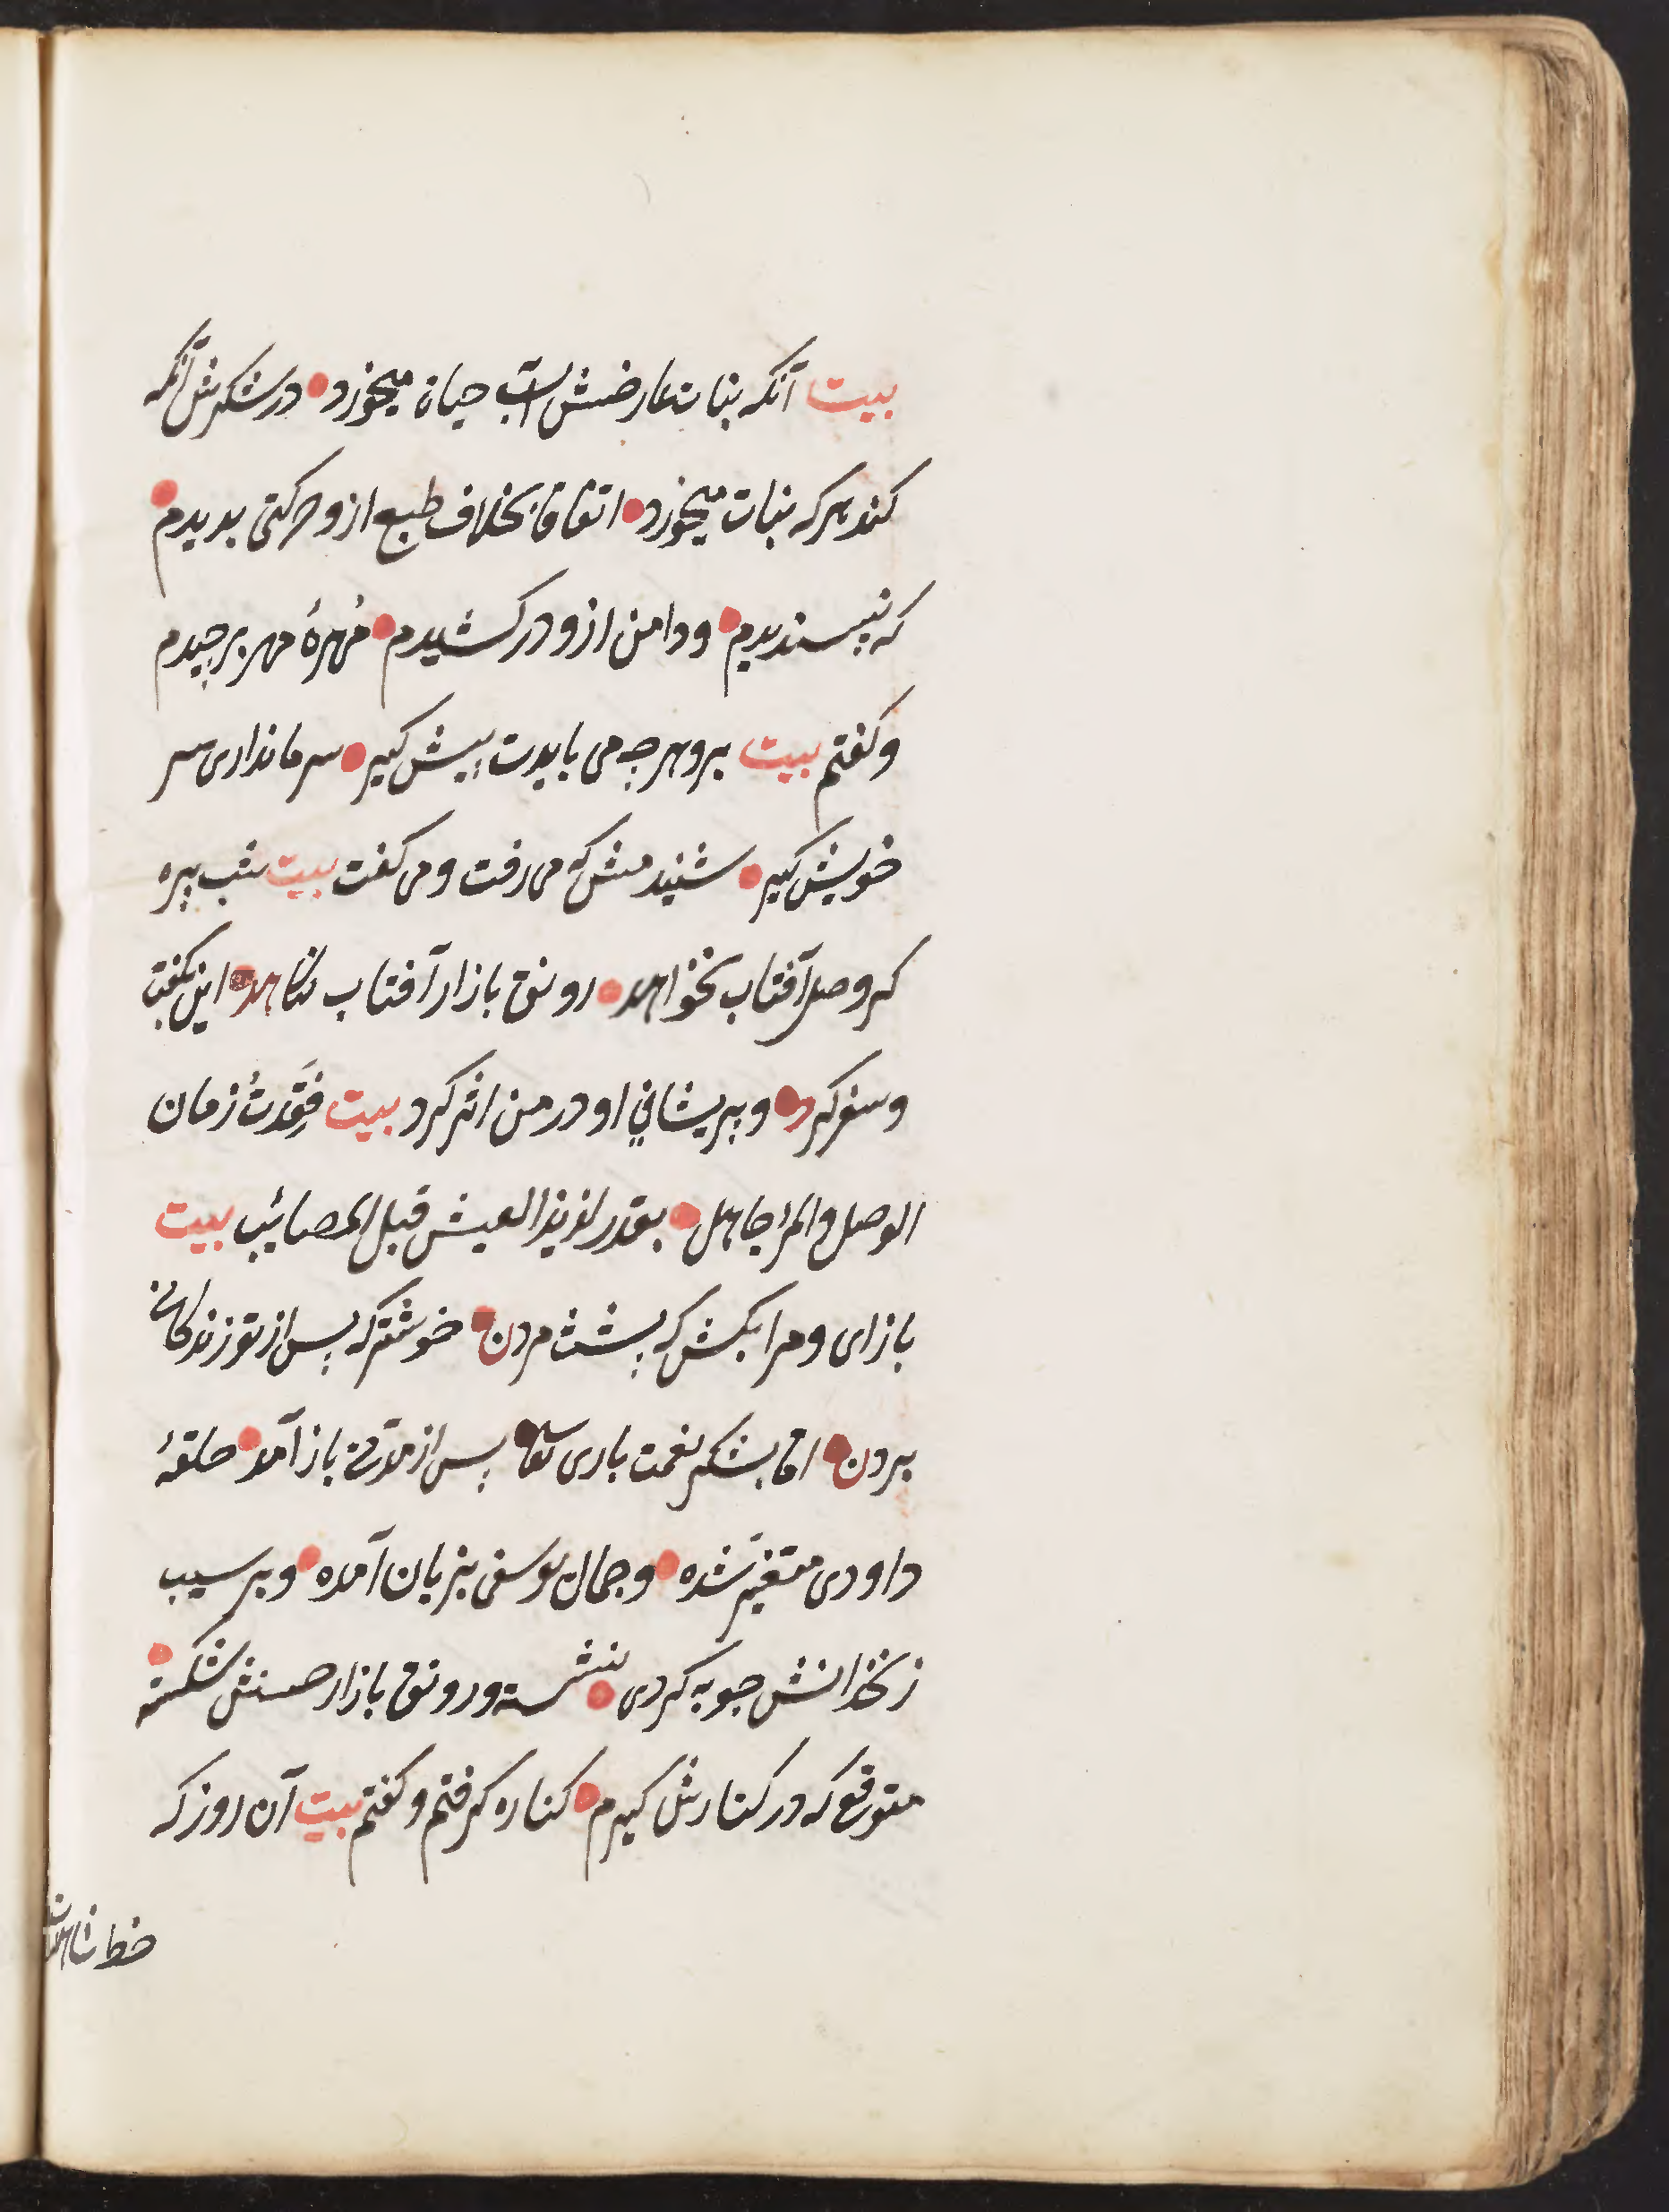 بیت آنکه بنات عارضش آب حیات میخورد در شکرش نکه
کند هر که بنات میخورد اتفاقا بخلاف طبع ازو حرکتی بدیدم
که نپسندیدم ودامن ازو در کشیدم مُهرهٔ مهر برچیدم
وکفتم بیت برو هرچه می بایدت پیش کیر سر ما نداری سر
خویش کیر شنیدمش که می رفت ومی کفت بیت شب پره
کر وصل آفتاب نخواهد رونق بازار آفتاب نکاهد این بکفت
وسفر کرد وپریشانی او در من اثر کرد بیت فَقَدتُ زمان
الوصل والمرء جاهل بقدر لذیذ العیش قبل المصائب بیت
باز ای ومرا بکش که پیشت مردن خوشتر که پس از تو زندکانی
بردن اما بشکر نعمت باری تعا پس از مدتی باز آمد حلقهٔ
داودی متغیر شده وجمال یوسفی بزیان آمده وبر سیب
زنخدانش چو به کردی نشسته ورونق بازار حسنش شکسته
متوقع که در کنارش کیرم کناره کرفتم وکفتم بیت آن روز که
خط شاهدت